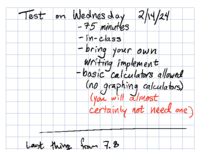 Test on Wednesday 2/14/24
- 75 minutes
- in-class
- bring your own
writing implement
- basic calculators allowed
(no graphing calculators)
(you will almost
certainly not need one)
Last thing from 7.8